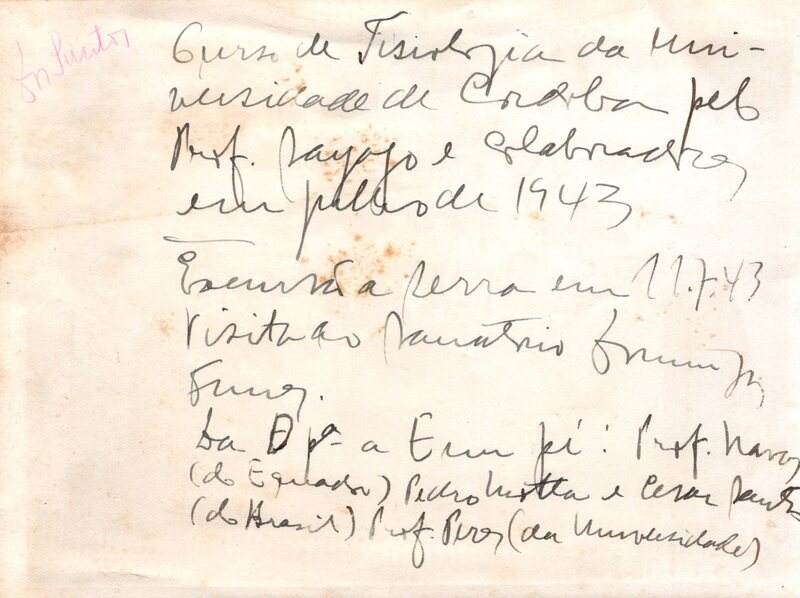 Curso de Tisiologia da Uni-
versidade de Cordoba pelo
Prof. Sayago e Colaboradores
em julho de 1943
Excursão a serra em 11.7.43
Visita ao Sanatório
Funes.
Da D pª a E em pé: Prof.
(do Equador) Pedro Motta e Cesar Santos
(do Brasil) Prof. Peres (da Universidade)